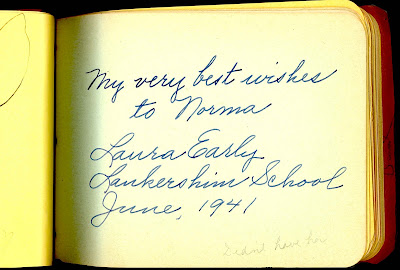 My very best wishes
to Norma
Laura Early
Lankershim School
June, 1941
Didn't have her